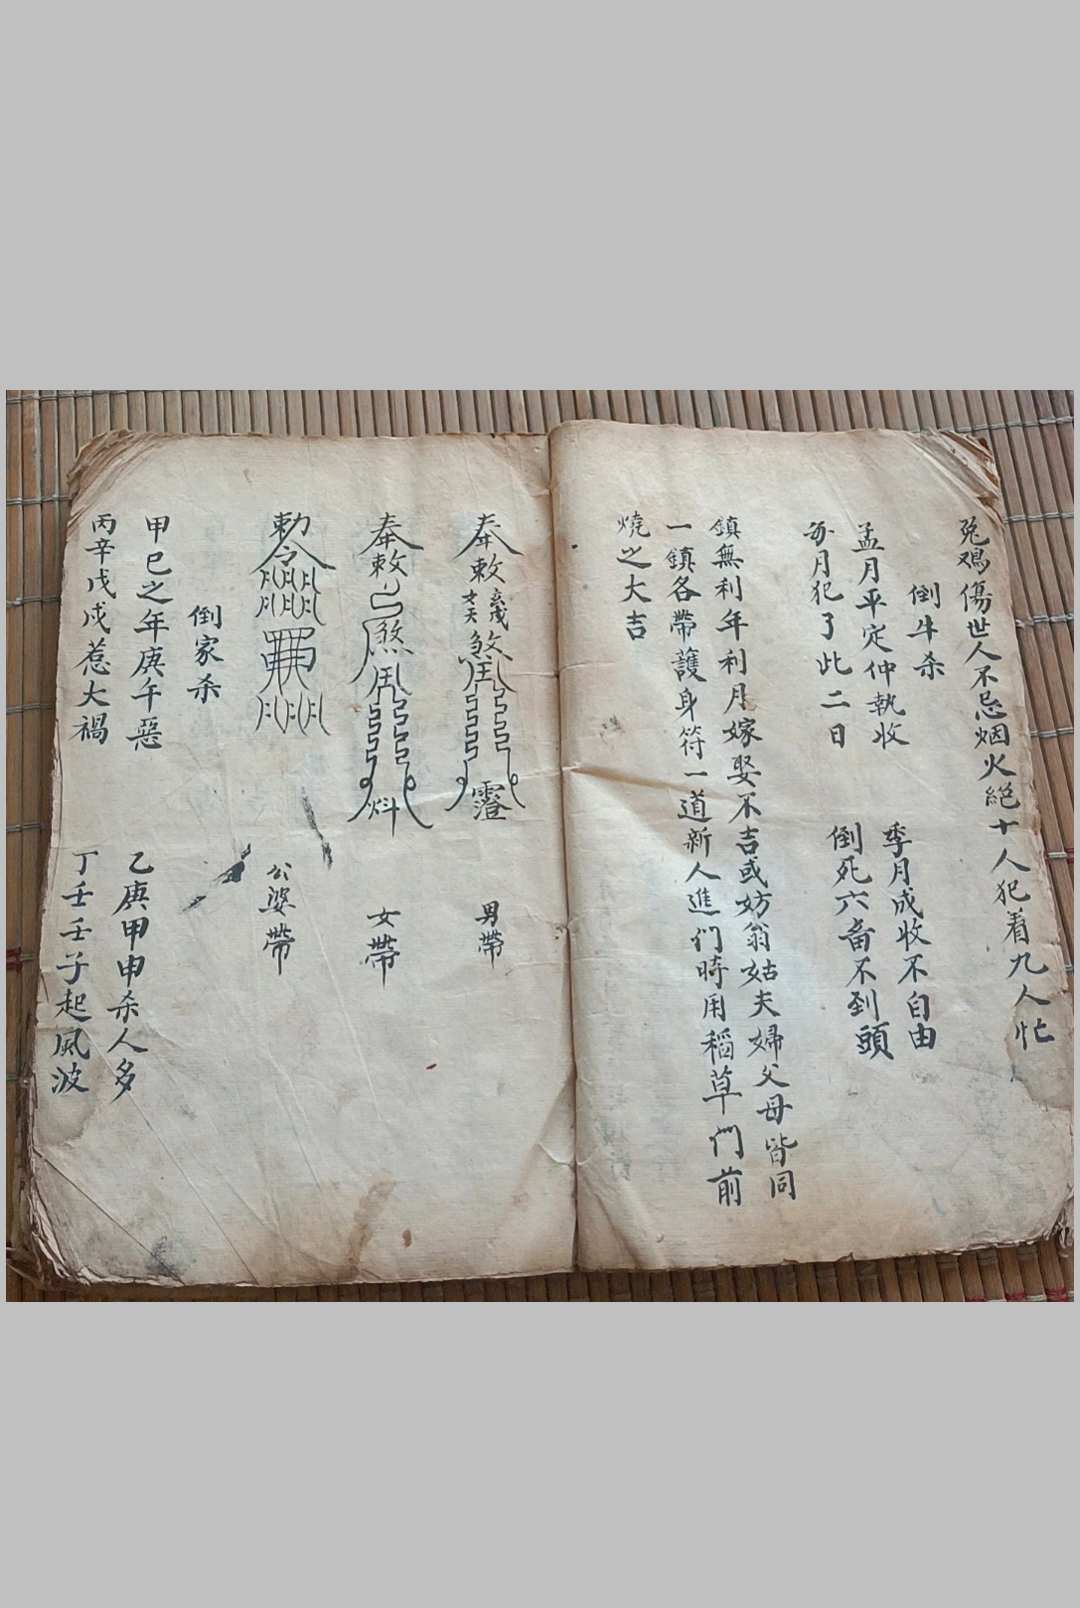 兔鸡傷世人不忌烟火绝十人犯着九人忙
倒牛杀
孟月平定仲執收 季月成收不自由
每月犯了此二日 倒死六畜不到頭
鎮無利年利月嫁娶不吉或妨翁姑夫婦父母皆同
一鎮各帶護身符一道新人進们時用稻草门前
燒之大吉
奉敕 煞 男帶
奉敕 煞 女帶
勅令 公婆帶
倒家杀
甲己之年庚午惡 乙庚甲申杀人多
丙辛戊戌惹大禍 丁壬壬子起風波